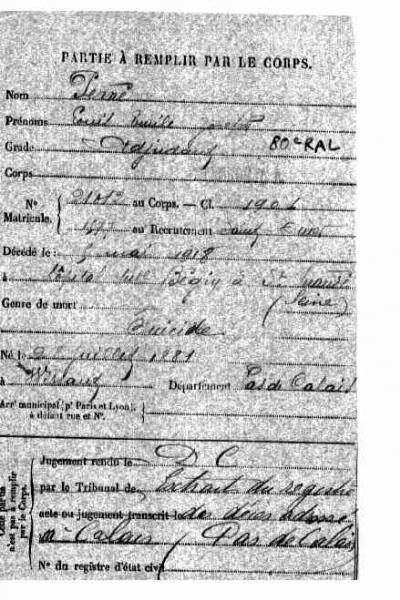 PARTIE À REMPLIR PAR LE CORPS.
Nom
Prénoms Louis Emile
Grade Adjudant 80e RAL
Corps
N° 2101² au Corps. — Cl. 1901
Matricule. au Recrutement Saint Omer
Décédé le : 5 mai 1918
à Bégin à St Mandé
(Seine)
Genre de mort
Suicide
Né le juillet 1881
à Département Pas de Calais
Arrt municipal (pr Paris et Lyon),
à défaut rue et N°.
Cette partie
n'est pas à remplir
par le Corps.
Jugement rendu le D C
par le Tribunal de Extrait du registre
acte ou jugement transcrit le des décès adressé
Calais (Pas de Calais
N° du registre d'état civil